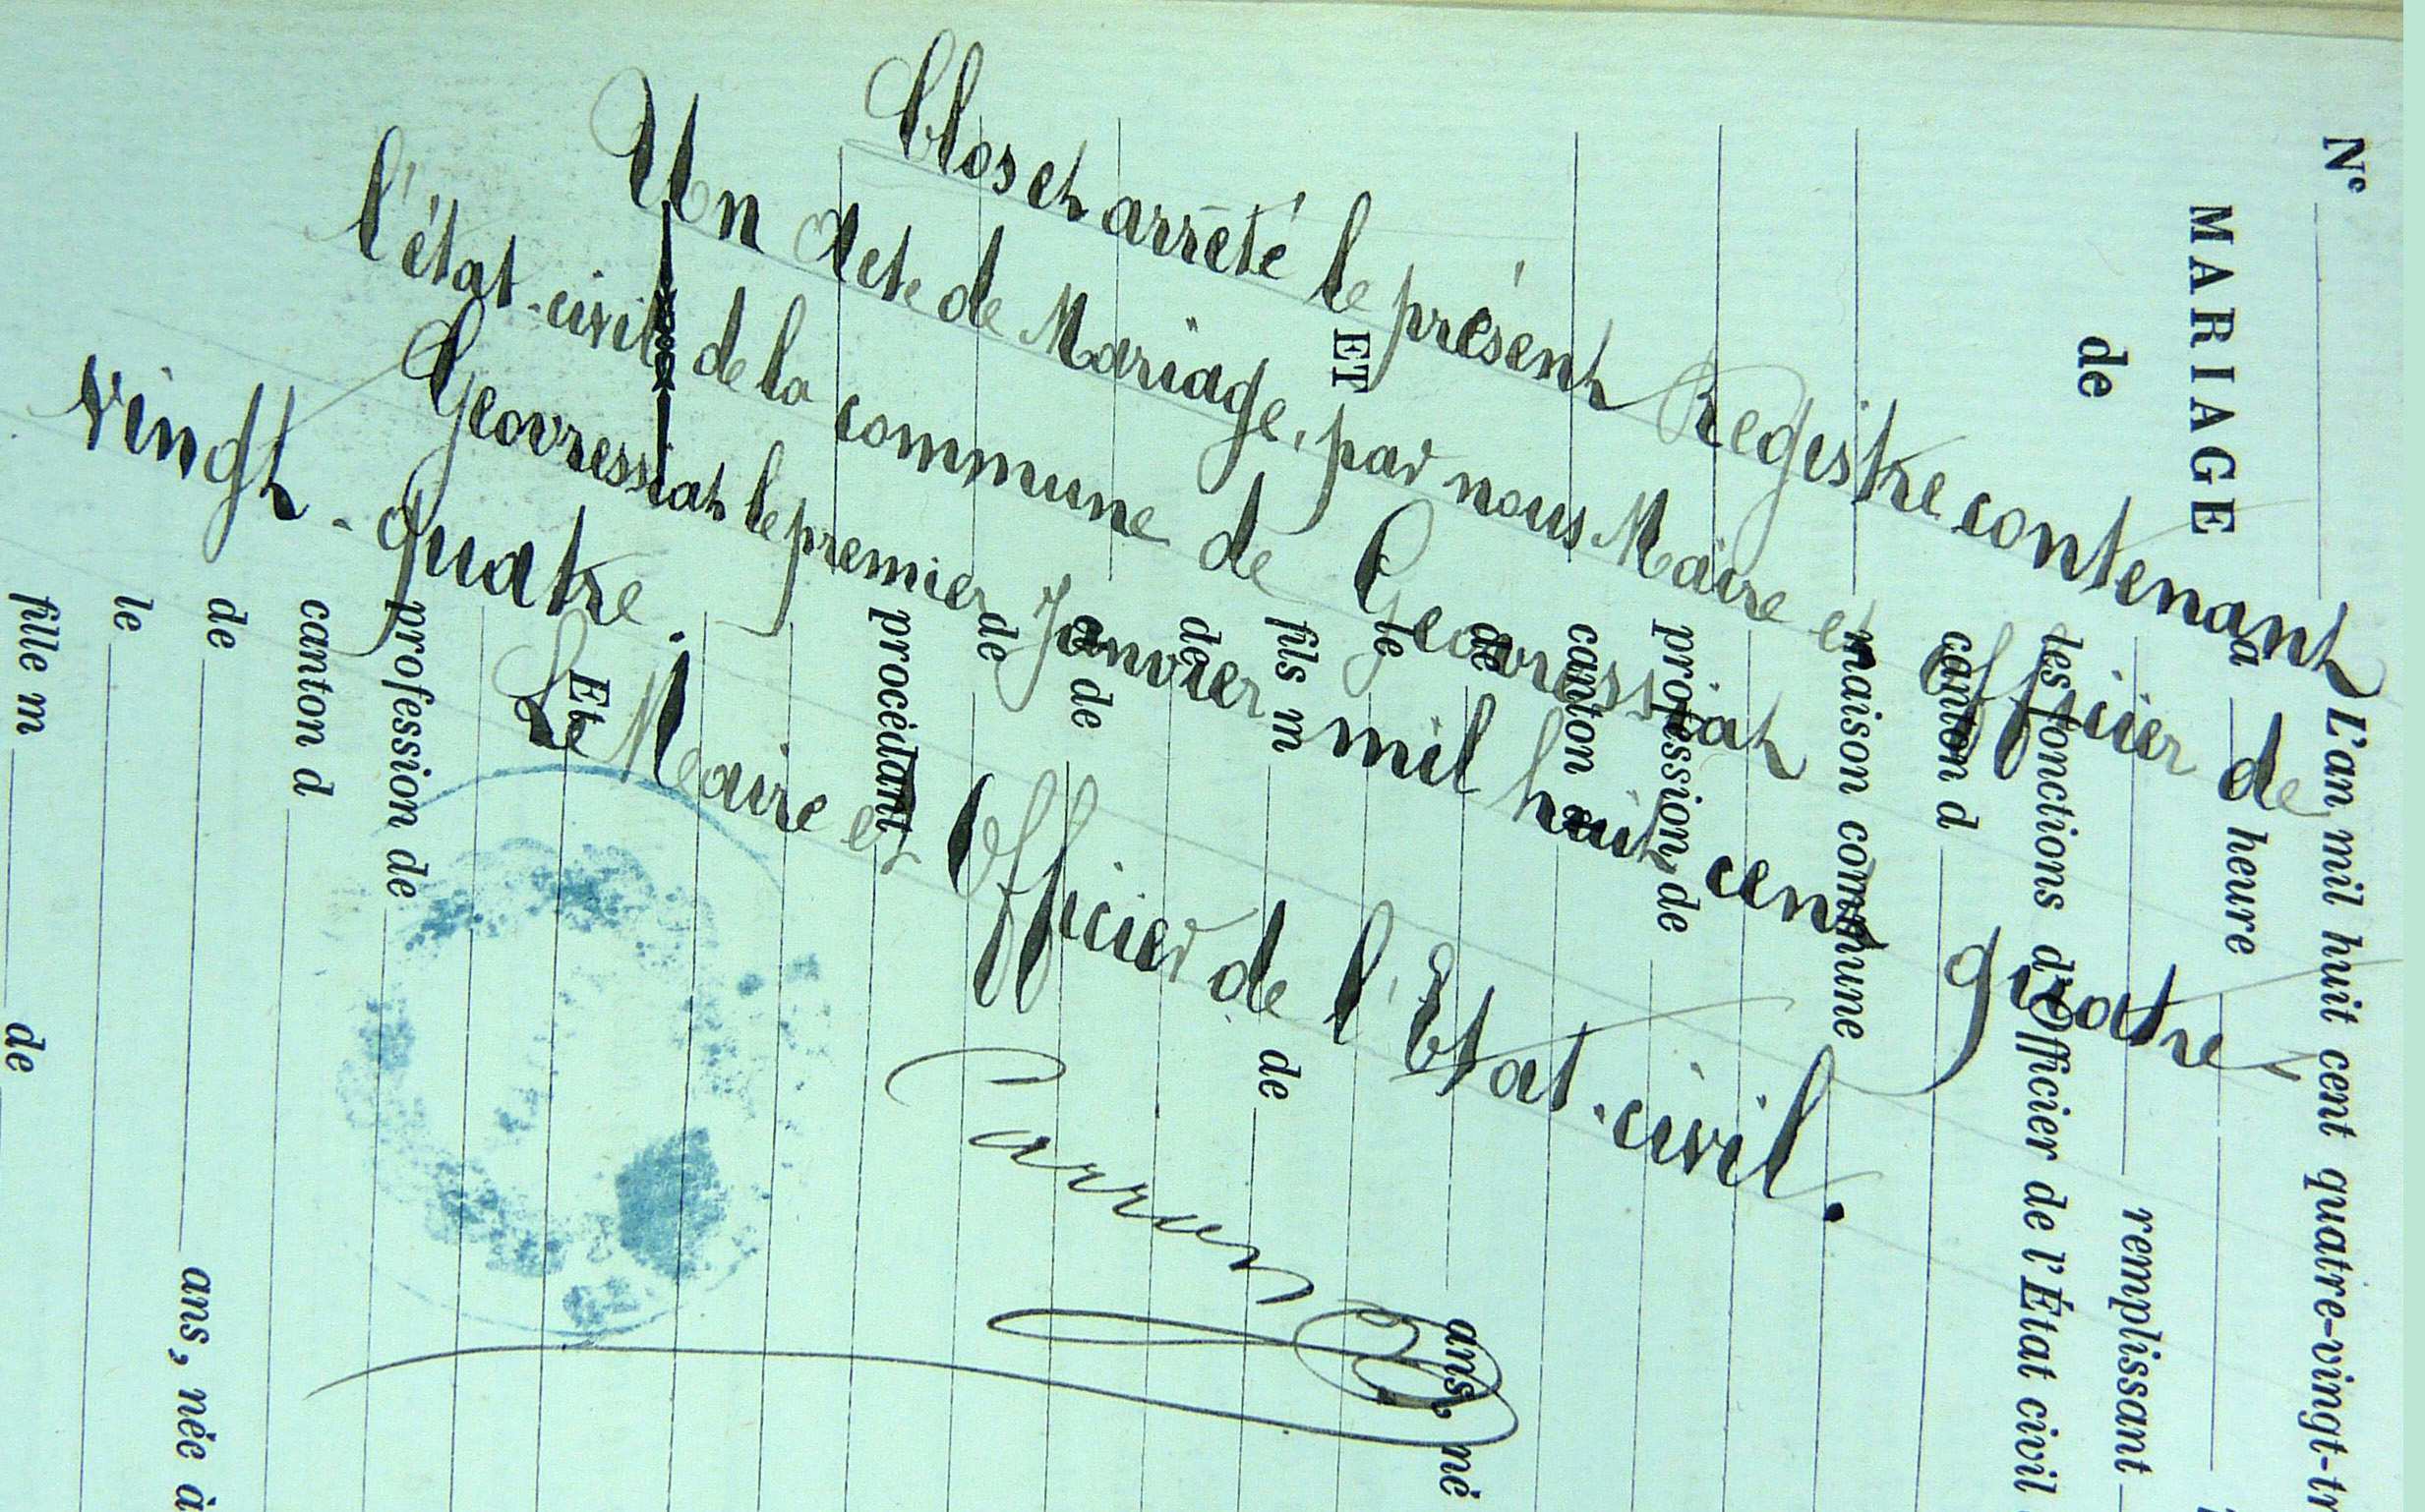 Clos et arrêté le présent Registre contenant
Un Acte de Mariage, par nous Maire et Officier de
l'état-civil de la commune de Geovressiat
Geovressiat le premier Janvier mil huit cent quatre
vingt-quatre.
Le Maire et Officier de l'Etat-civil.
N°
MARIAGE
de
ET
L'an mil huit cent quatre-vingt-tr
à heure
remplissant
les fonctions d'Officier de l'État civil
canton d
maison commune
profession de
canton
de ans, né
le
fils m de
de
de
de
procédant
Et
profession de
canton d
de ans, née à
le
fille m de